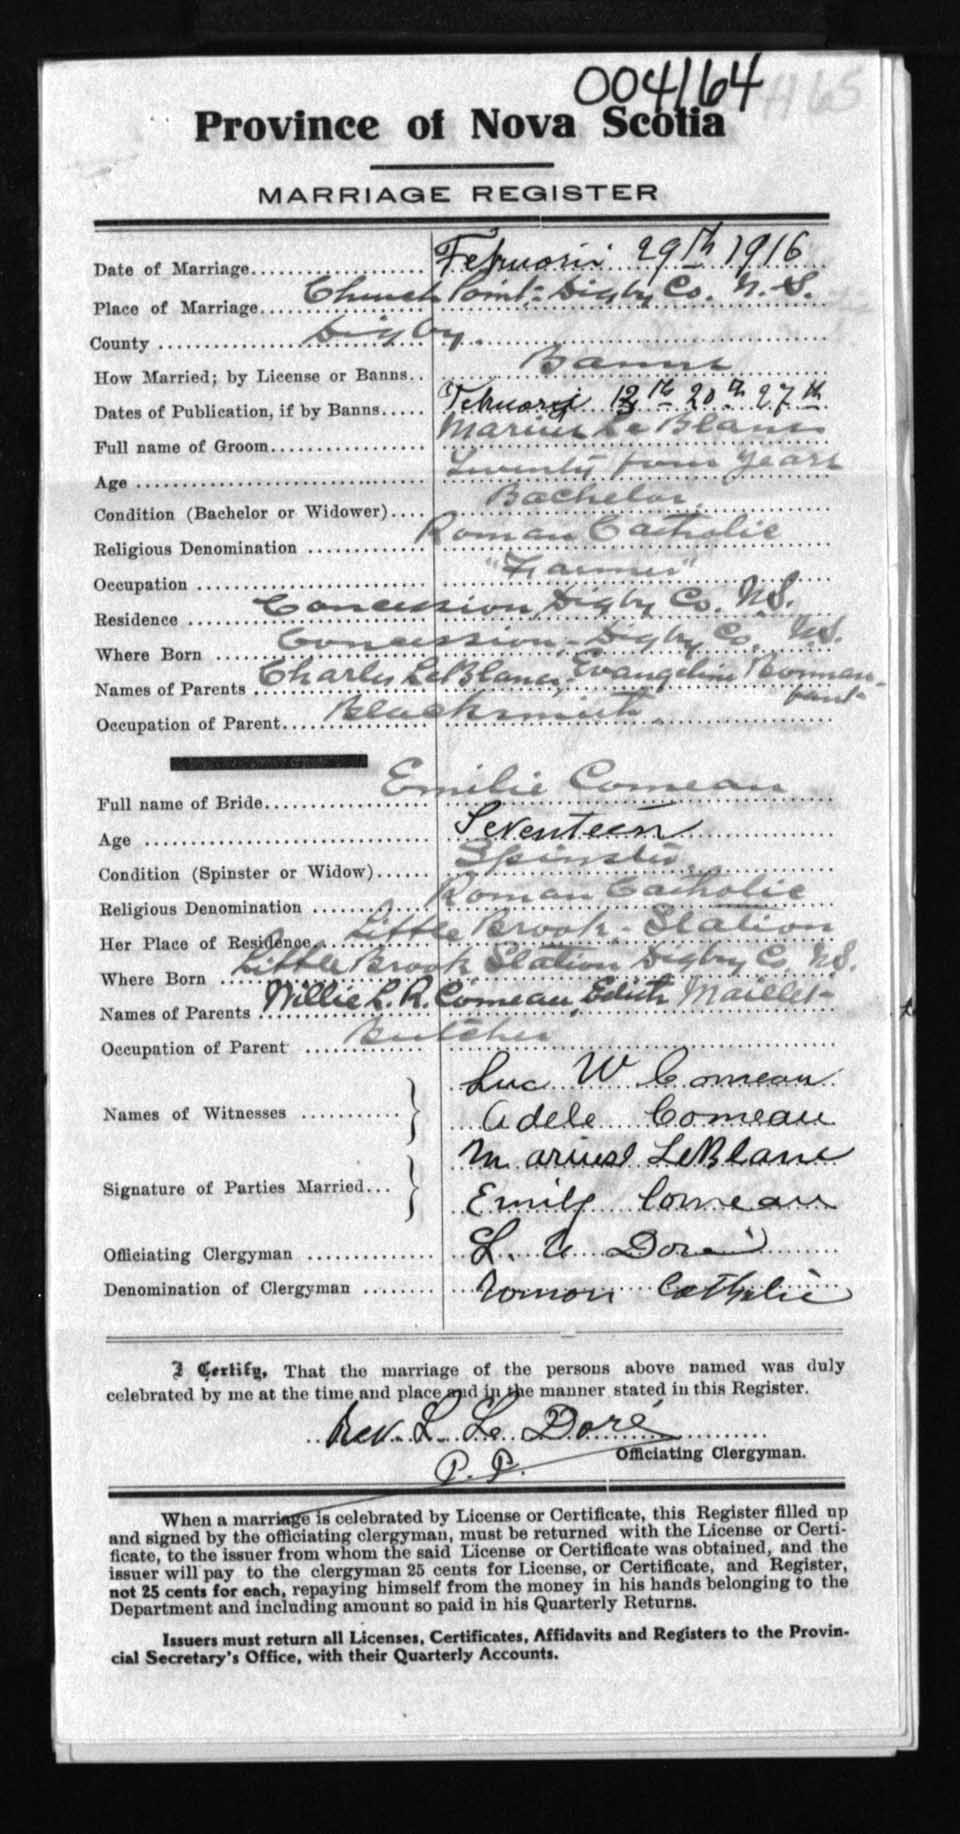 004164 4165
Province of Nova Scotia
MARRIAGE REGISTER
Date of Marriage Februarii 29th 1916
Place of Marriage Church Point - Digby Co. N.S.
County Digby.
How Married; by License or Banns Banns
Dates of Publication, if by Banns Februarii 13th 20th 27th
Full name of Groom Marius Le Blanc
Age Twenty four years
Condition (Bachelor or Widower) Bachelor
Religious Denomination Roman Catholic
Occupation "Farmer"
Residence Concession, Digby Co. N.S.
Where Born Concession, Digby Co. N.S.
Names of Parents Charles LeBlanc, Evangeline
Occupation of Parent Blacksmith
Full name of Bride Emilie Comeau
Age Seventeen
Condition (Spinster or Widow) Spinster
Religious Denomination Roman Catholic
Her Place of Residence Little Brook - Station
Where Born Little Brook Station Digby Co N.S.
Names of Parents Willie L. R. Comeau, Edith Maillet
Occupation of Parent Butcher
Names of Witnesses Luc W Comeau
Adele Comeau
Signature of Parties Married Marius LeBlanc
Emily Comeau
Officiating Clergyman Doré
Denomination of Clergyman Roman Catholic
I Certify, That the marriage of the persons above named was duly
celebrated by me at the time and place and in the manner stated in this Register.
Rev. L. Le Doré
P. P. Officiating Clergyman.
When a marriage is celebrated by License or Certificate, this Register filled up
and signed by the officiating clergyman, must be returned with the License or Certi-
ficate, to the issuer from whom the said License or Certificate was obtained, and the
issuer will pay to the clergyman 25 cents for License, or Certificate, and Register,
not 25 cents for each, repaying himself from the money in his hands belonging to the
Department and including amount so paid in his Quarterly Returns.
Issuers must return all Licenses, Certificates, Affidavits and Registers to the Provin-
cial Secretary's Office, with their Quarterly Accounts.